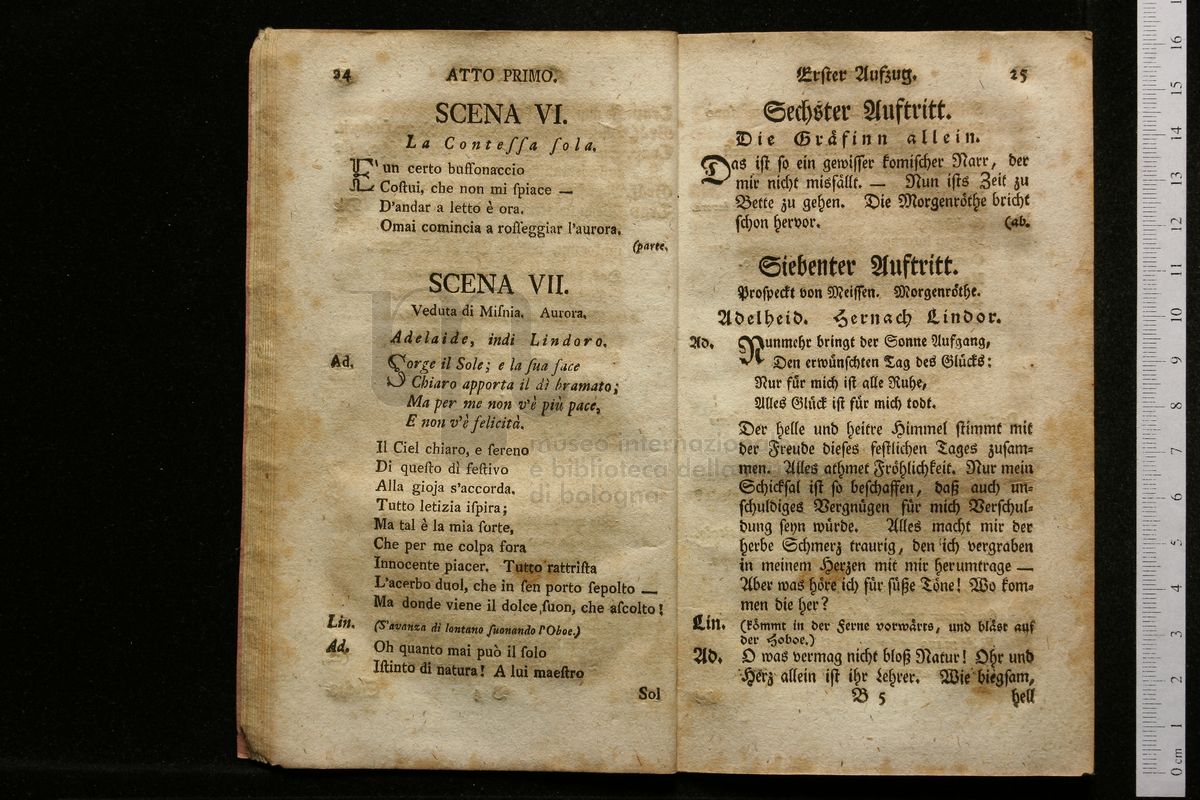 24 ATTO PRIMO.
SCENA VI.
La Conteſſa ſola.
E' un certo buffonaccio
Coſtui, che non mi ſpiace —
D'andar a letto è ora.
Omai comincia a roſſeggiar l'aurora.
(parte.
SCENA VII.
Veduta di Miſnia. Aurora.
Adelaide, indi Lindoro.
Ad. Sorge il Sole; e la ſua face
Chiaro apporta il dì bramato;
Ma per me non v'è più pace,
E non v'è felicità.
Il Ciel chiaro, e ſereno
Di queſto dì feſtivo
Alla gioja s'accorda.
Tutto letizia iſpira;
Ma tal è la mia ſorte,
Che per me colpa fora
Innocente piacer. Tutto rattriſta
L'acerbo duol, che in ſen porto ſepolto —
Ma donde viene il dolce ſuon, che aſcolto!
Lin. (S'avanza di lontano ſuonando l'Oboe.)
Ad. Oh quanto mai può il ſolo
Iſtinto di natura! A lui maeſtro
Sol
Erſter Aufzug. 25
Sechſter Auftritt.
Die Gräfinn allein.
Das iſt ſo ein gewiſſer komiſcher Narr, der
mir nicht misfällt. — Nun iſts Zeit zu
Bette zu gehen. Die Morgenröthe bricht
ſchon hervor. (ab.
Siebenter Auftritt.
Proſpeckt von Meiſſen. Morgenröthe.
Adelheid. Hernach Lindor.
Ad. Nunmehr bringt der Sonne Aufgang,
Den erwünſchten Tag des Glücks:
Nur für mich iſt alle Ruhe,
Alles Glück iſt für mich todt.
Der helle und heitre Himmel ſtimmt mit
der Freude dieſes feſtlichen Tages zuſam-
men. Alles athmet Fröhlichkeit. Nur mein
Schickſal iſt ſo beſchaffen, daß auch un-
ſchuldiges Vergnügen für mich Verſchul-
dung ſeyn würde. Alles macht mir der
herbe Schmerz traurig, den ich vergraben
in meinem Herzen mit mir herumtrage —
Aber was höre ich für ſüße Töne! Wo kom-
men die her?
Lin. (kömmt in der Ferne vorwärts, und bläst auf
der Hoboe.)
Ad. O was vermag nicht bloß Natur! Ohr und
Herz allein iſt ihr Lehrer. Wie biegſam,
B 5 hell
museo internazionale
e biblioteca della
di bologna
0 cm 1 2 3 4 5 6 7 8 9 10 11 12 13 14 15 16